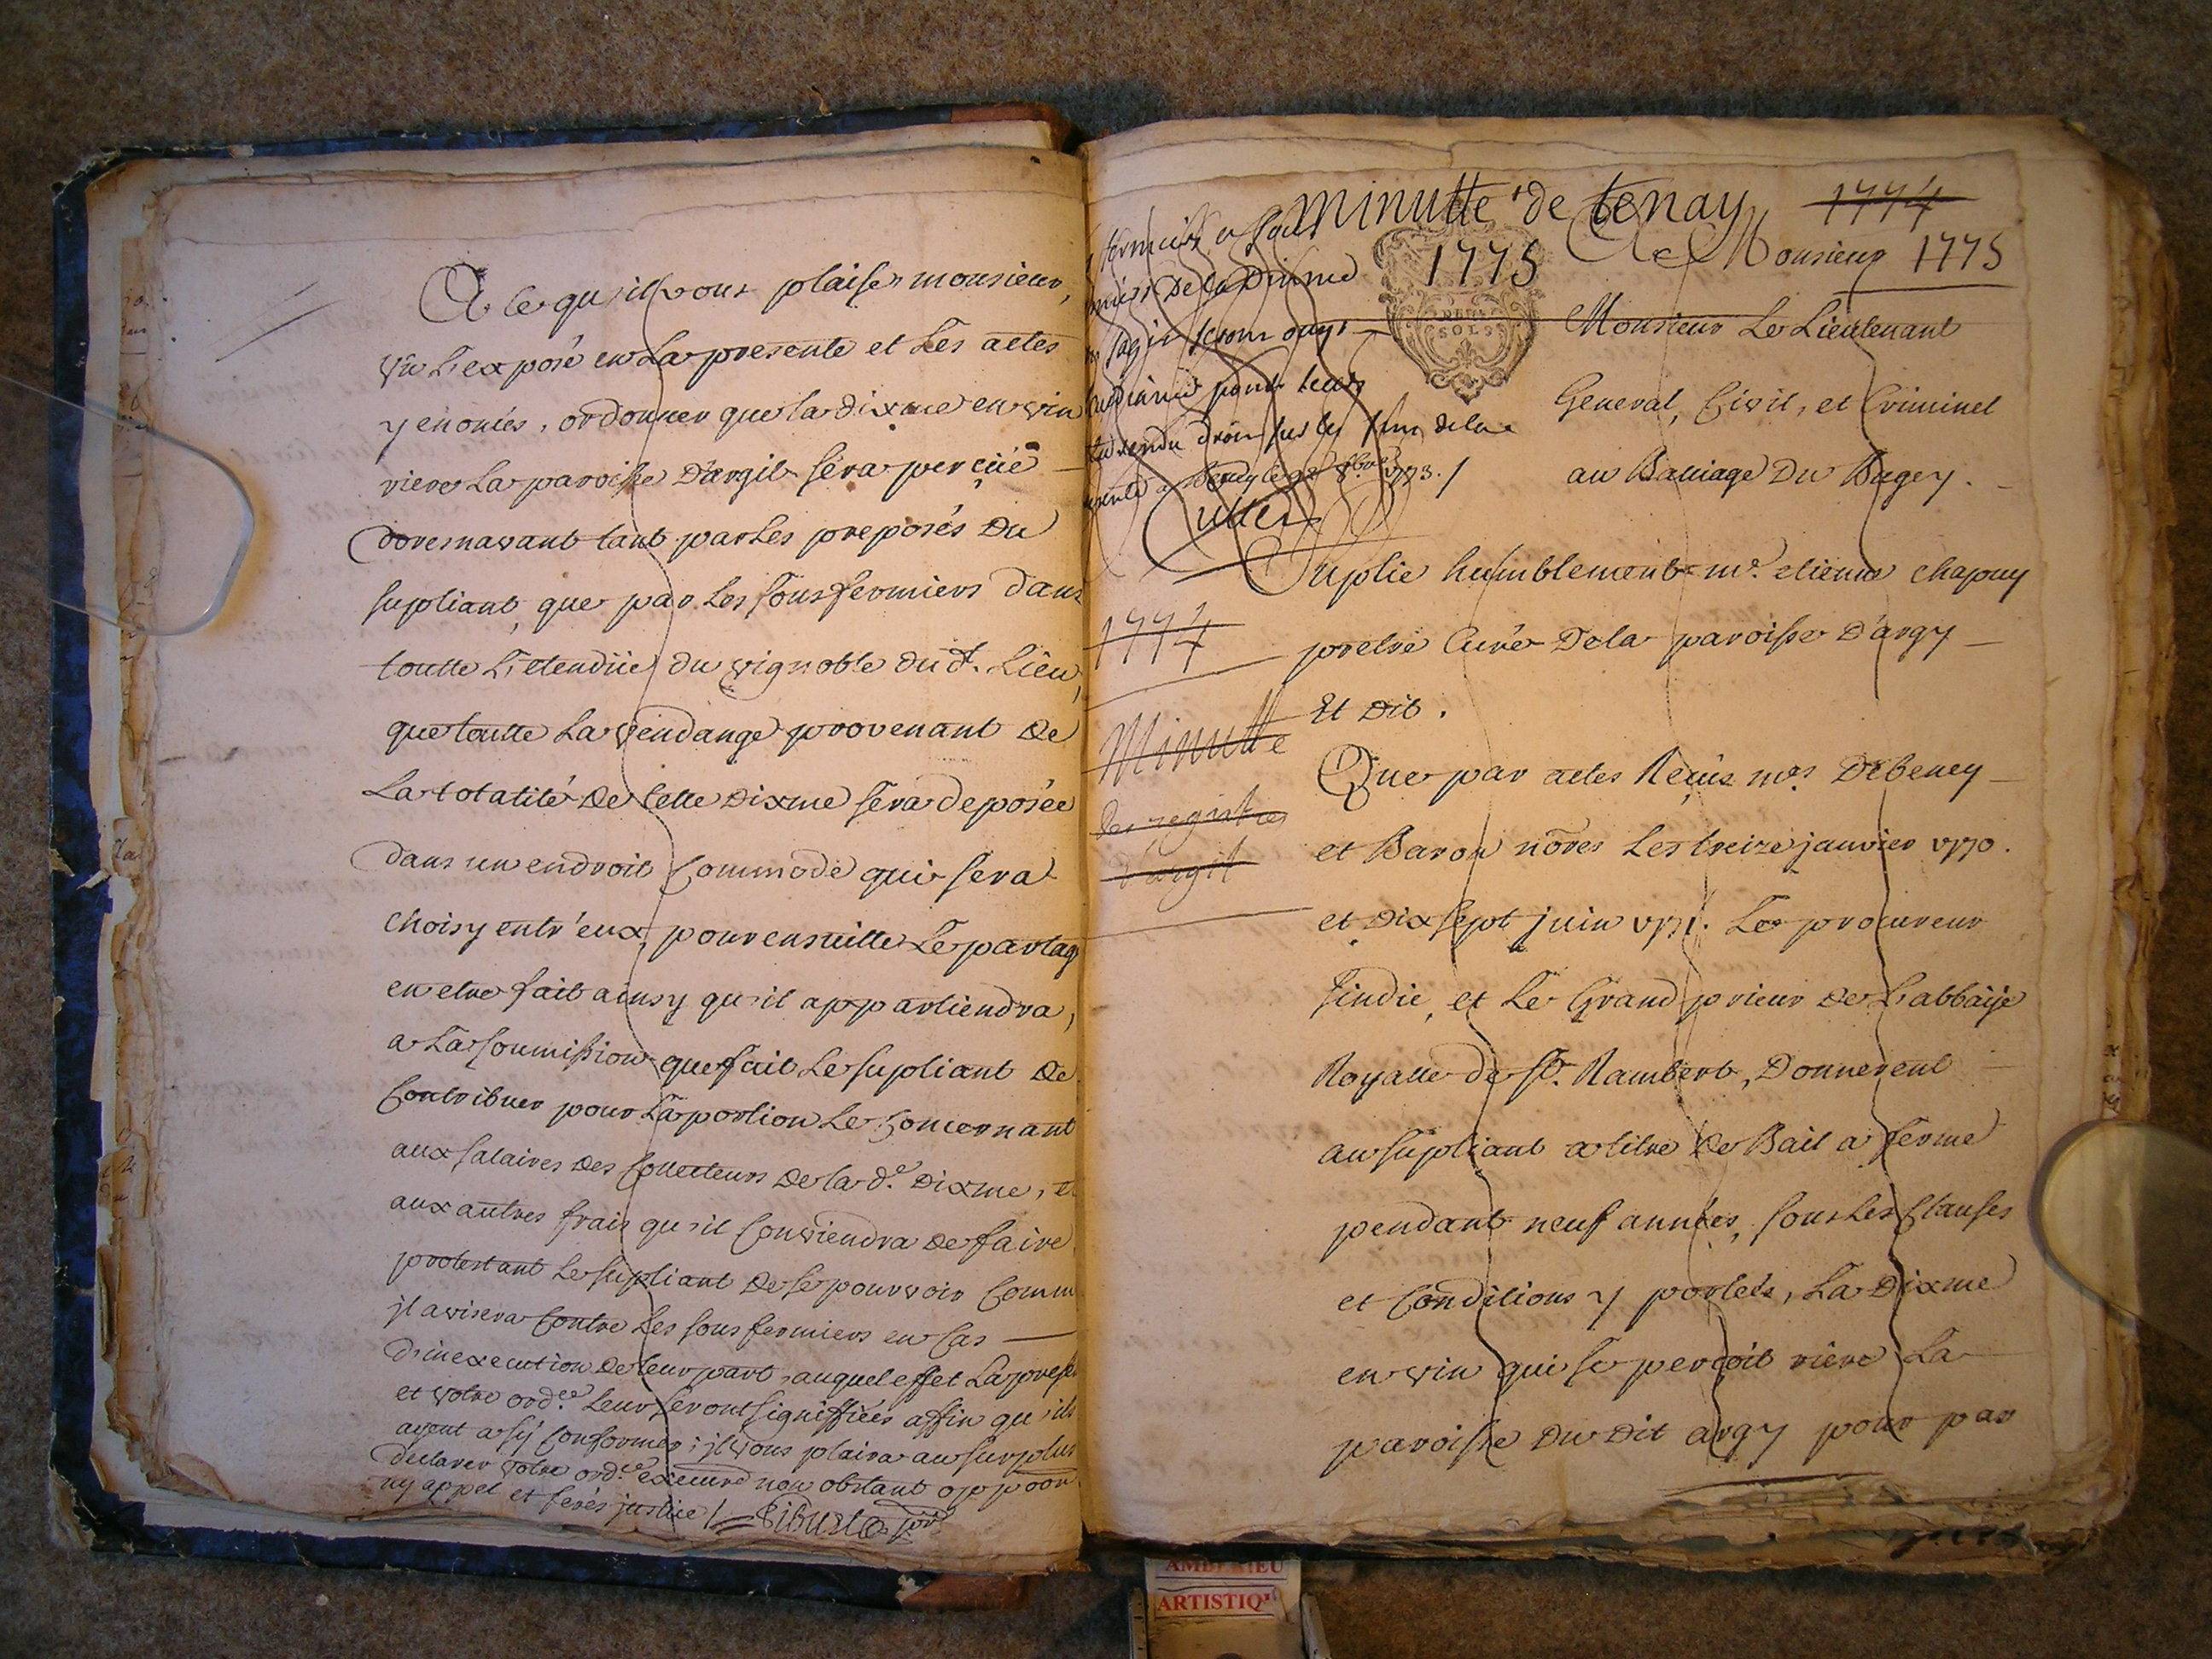 A ce qu'il vous plaise monsieur,
vû L'exposé en La presente et Les actes
y enoncés, ordonner que la dixme en vin
riere La paroisse D'argit sera perçüe
doresnavant tant par Les preposés Du
supliant, que par Les sousfermiers dans
toutte L'etendüe du vignoble du d.t Lieu,
que toutte La vendange provenant De
La totalité De Cette Dixme sera deposée
dans un endroit Commode qui sera
choisy entr'eux, pour ensuitte Le partag
en etre fait ainsy qu'il appartiendra,
a La soumission que fait Le supliant De
Contribuer pour La portion Le Concernant
aux salaires Des Collecteurs De la d.e Dixme, et
aux autres frais qu'il Conviendra De faire
protestant Le supliant De se pourvoir Comm
jl avisera Contre Les sous fermiers en Cas
D'inexecution De leur part, auquel effet La prese
et votre ord.ce Leur seront signiffiées affin qu'ils
ayent a s'y Conformer; jl vous plaira au surplus
declarer votre ord.ce executé non obstant oppoon
ny appel et ferés justice /
minutte de tenay 1774
1775
A Monsieur 1775
Monsieur Le Lieutenant
General, Civil, et Criminel
au Balliage Du Bugey.
De la Dixme
seront ouys
pour leur
droit sur les fins de la
DEUX
SOLS
Suplie humblement m.e etienne chapuy
pretre Curé De la paroisse D'argy
Et Dit.
1774
Minutte
des registres
d'argit
Que par actes Reçûs m.es Debeney
et Baron nores Les treize janvier 1770.
et Dix sept juin 1771. Le procureur
sindic, et Le Grand prieur De L'abbaÿe
Royalle de S.t Rambert, Donnerent
au supliant a titre De Bail a ferme
pendant neuf années, sous Les Clauses
et Conditions y portées, La Dixme
en vin qui se perçoit riere La
paroisse Du Dit argy pour par
AMBERIEU
ARTISTIQ